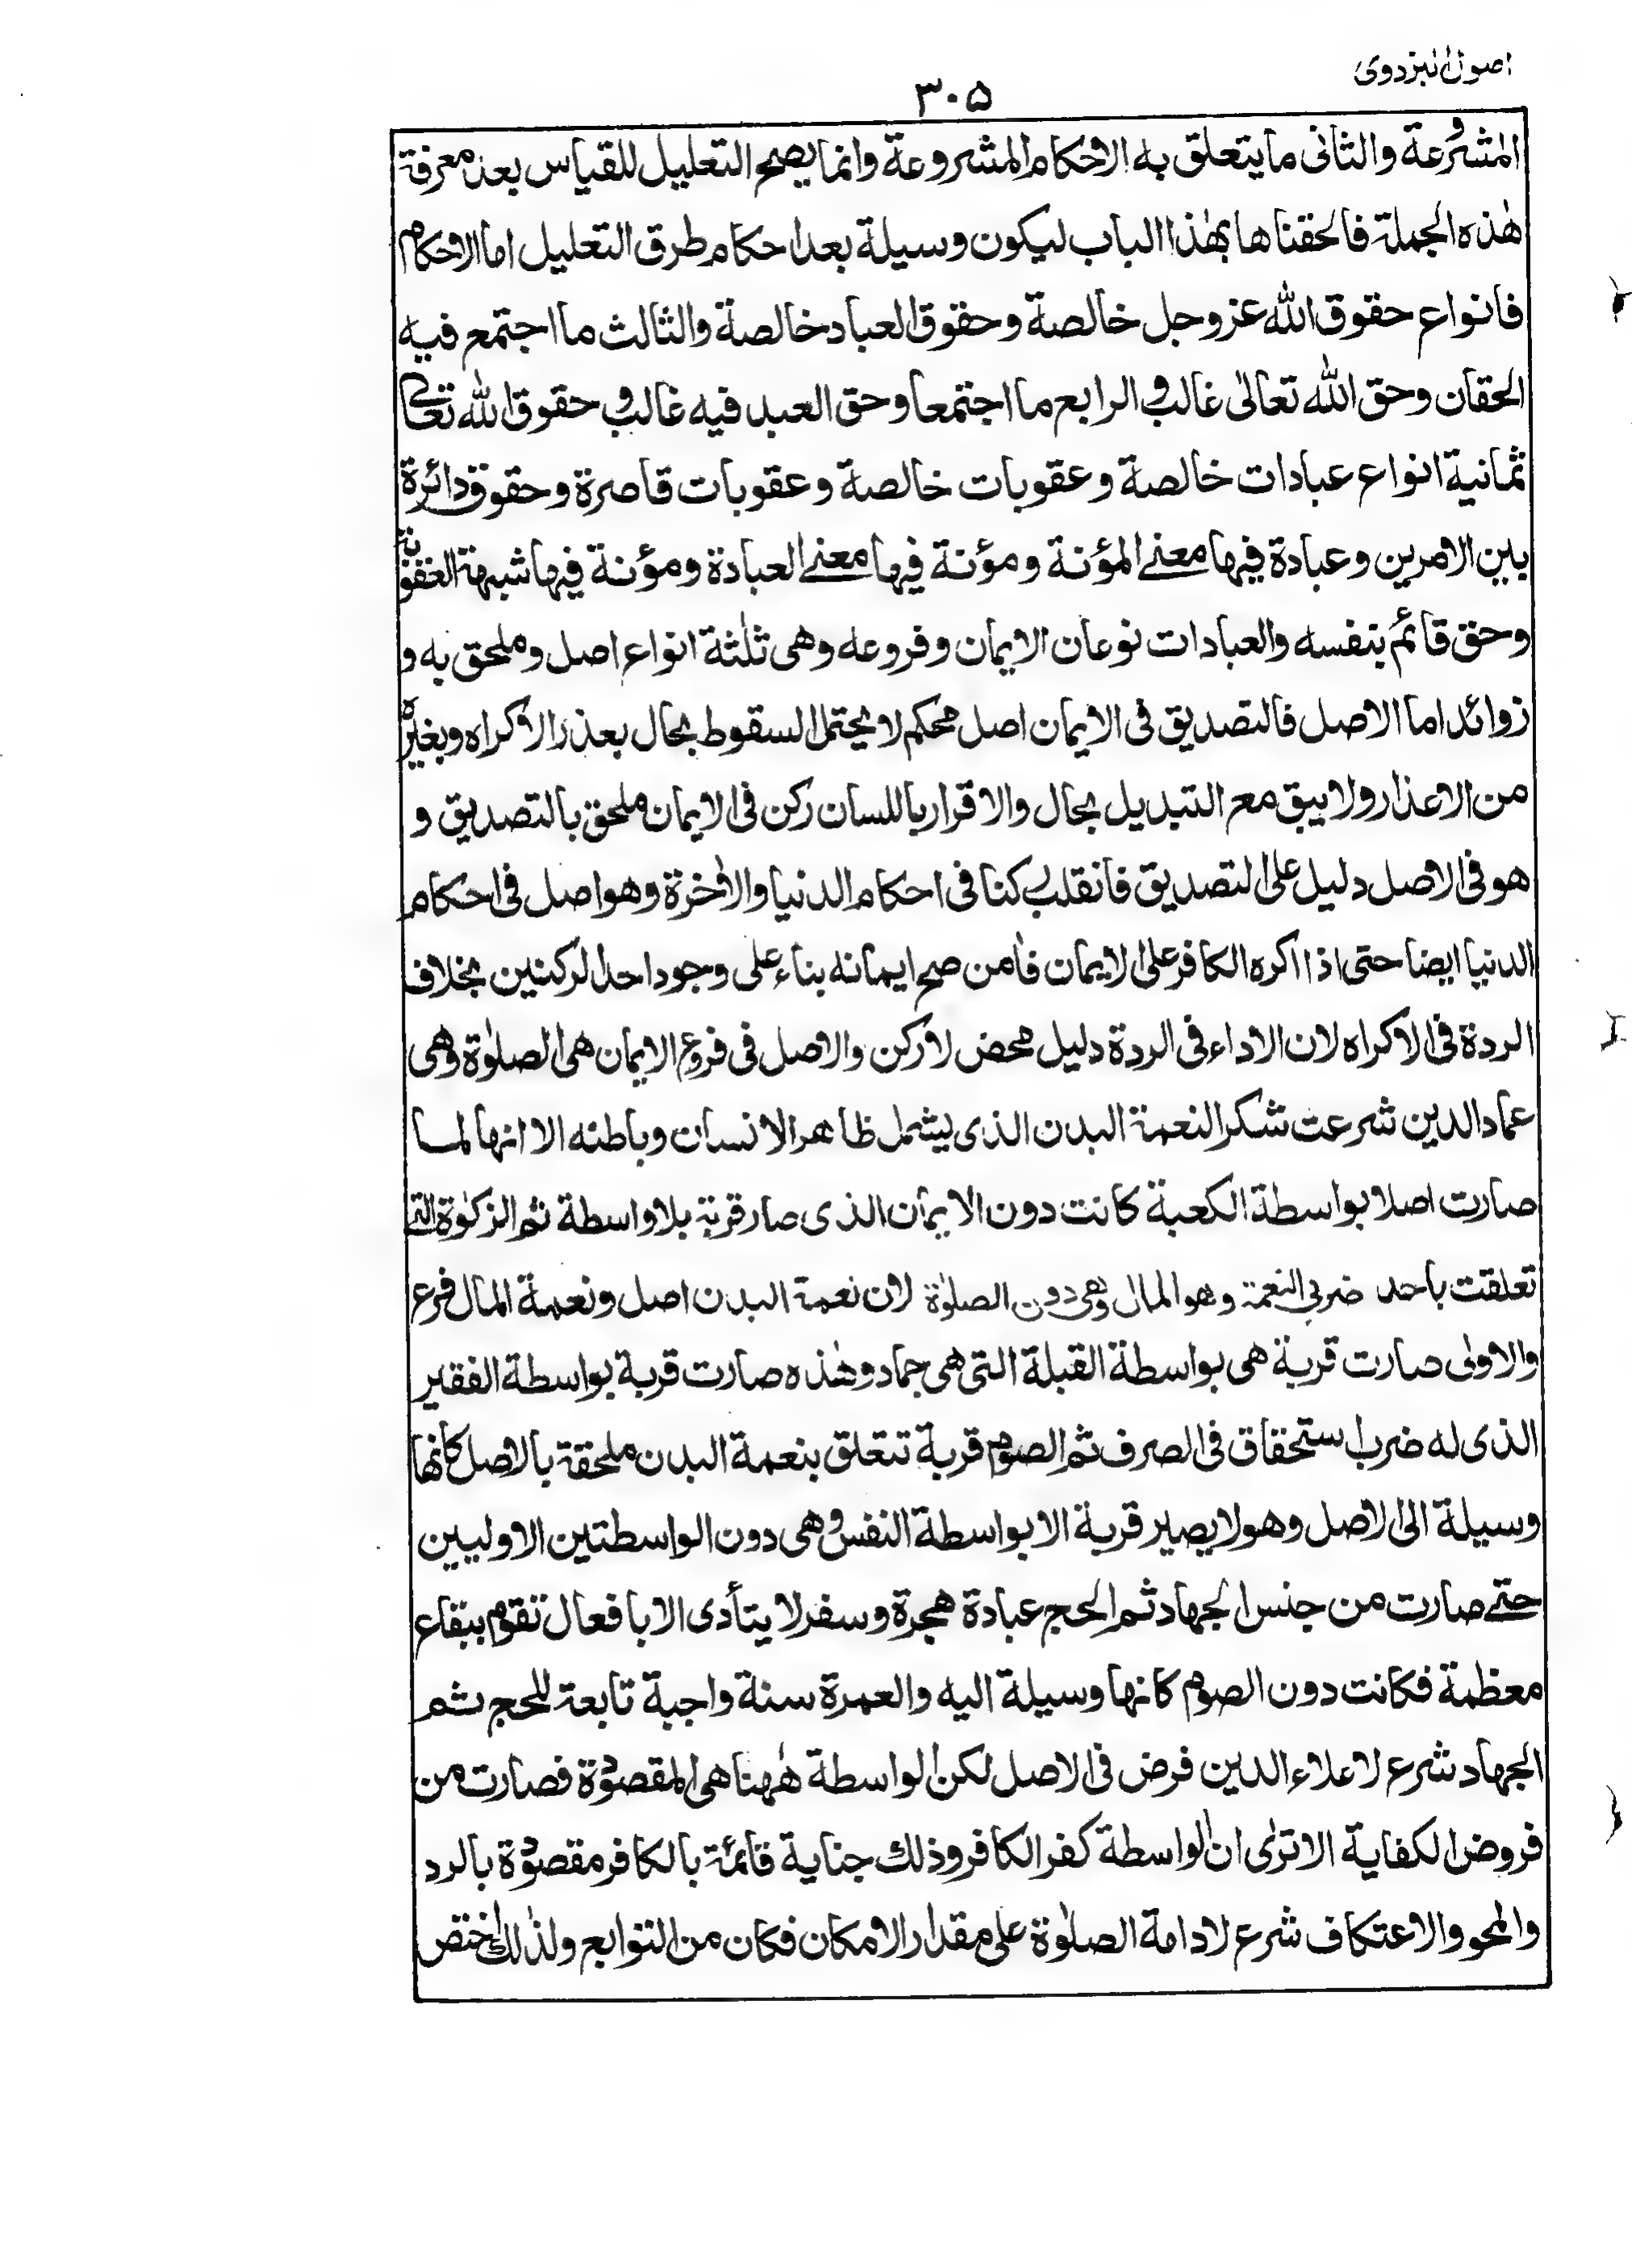 اصول البزدوی
۳۰۵
المشروعة والثانی ما یتعلق به الاحکام المشروعة وانما یصح التعلیل للقیاس بعد معرفة
هٰذه الجملة فالحقناها بهٰذا الباب لیکون وسیلة بعد احکام طرق التعلیل اما الاحکام
فانواع حقوق الله عز وجل خالصة وحقوق العباد خالصة والثالث ما اجتمع فیه
الحقان وحق الله تعالٰی غالب والرابع ما اجتمعا وحق العبد فیه غالب وحقوق الله تعالٰی
ثمانیة انواع عبادات خالصة وعقوبات خالصة وعقوبات قاصرة وحقوق دائرة
بین الامرین وعبادة فیها معنے المؤنة ومؤنة فیها معنے العبادة ومؤنة فیها شبهة العقوبة
وحق قائم بنفسه والعبادات نوعان الایمان وفروعه وهی ثلٰثة انواع اصل وملحق به و
زوائد اما الاصل فالتصدیق فی الایمان اصل محکم لا یحتمل السقوط بحال بعذر الاکراه وبغیره
من الاعذار ولا یبق مع التبدیل بحال والاقرار باللسان رکن فی الایمان ملحق بالتصدیق و
هو فی الاصل دلیل علی التصدیق فانقلب رکنا فی احکام الدنیا والاٰخرة وهو اصل فی احکام
الدنیا ایضا حتی اذا اکره الکافر علی الایمان فاٰمن صح ایمانه بناء علی وجود احد الرکنین بخلاف
الردة فی الاکراه لان الاداء فی الردة دلیل محض لا رکن والاصل فی فروع الایمان هی الصلوٰة وهی
عماد الدین شرعت شکر النعمة البدن الذی یشمل ظاهر الانسان وباطنه الا انها لما
صارت اصلا بواسطة الکعبة کانت دون الایمان الذی صار قربة بلا واسطة ثم الزکوٰة التے
تعلقت باحد ضربی النعمة وهو المال وهی دون الصلوٰة لان نعمة البدن اصل ونعمة المال فرع
والاولٰی صارت قربة هی بواسطة القبلة التی هی جماد وهٰذه صارت قربة بواسطة الفقیر
الذی له ضرب استحقاق فی الصرف ثم الصوم قربة تتعلق بنعمة البدن ملحقة بالاصل کانها
وسیلة الی الاصل وهو لا یصیر قربة الا بواسطة النفس وهی دون الواسطتین الاولیین
حتے صارت من جنس الجهاد ثم الحج عبادة هجرة وسفر لا یتأدی الا بافعال تقوم ببقاع
معظمة فکانت دون الصوم کانها وسیلة الیه والعمرة سنة واجبة تابعة للحج ثم
الجهاد شرع لاعلاء الدین فرض فی الاصل لکن الواسطة هٰهنا هی المقصودة فصارت من
فروض الکفایة الا ترٰی ان الواسطة کفر الکافر وذلك جنایة قائمة بالکافر مقصودة بالرد
والمحو والاعتکاف شرع لادامة الصلوٰة علی مقدار الامکان فکان من التوابع ولذٰلك اختص